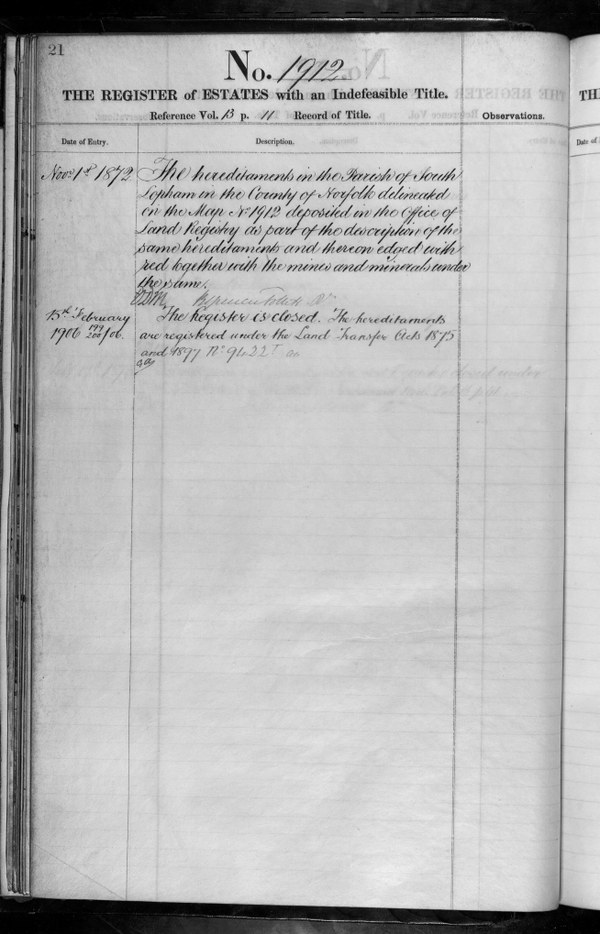 21
No. 1912.
THE REGISTER of ESTATES with an Indefeasible Title.
Reference Vol. B p. 11 Record of Title.
Observations.
Date of Entry.
Description.
Novr 1st 1872
The hereditaments in the Parish of South
Lopham in the County of Norfolk delineated
on the Map No 1912 deposited in the Office of
Land Registry as part of the description of the
same hereditaments and thereon edged with
red together with the mines and minerals under
the same.
15th February
1906 199/200/06.
The Register is closed. The hereditaments
are registered under the Land Transfer Acts 1875
and 1897 No
TH
Date of